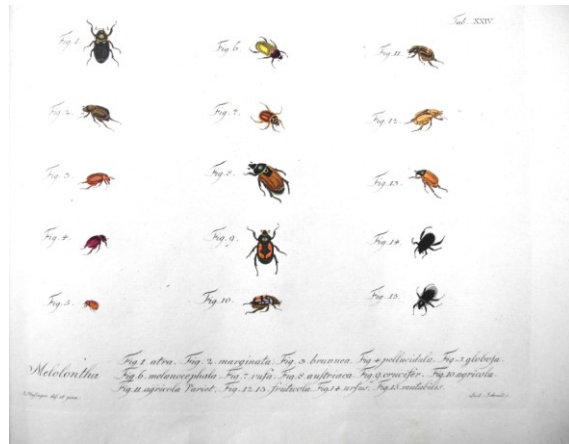 Tab. XXIV.
Fig. 1.
Fig. 2.
Fig. 3.
Fig. 4.
Fig. 5.
Fig. 6.
Fig. 7.
Fig. 8.
Fig. 9.
Fig. 10.
Fig. 11.
Fig. 12.
Fig. 13.
Fig. 14.
Fig. 15.
Melolontha
Fig. 1 atra. Fig. 2. marginata. Fig. 3 brunnea. Fig. 4 pellucidula. Fig. 5 globosa.
Fig. 6. melanocephala. Fig. 7. rufa. Fig. 8. austriaca. Fig. 9. crucifer. Fig. 10 agricola.
Fig. 11 agricola Variet. Fig. 12. 13. fruticola. Fig. 14. ursus. Fig. 15. mutabilis.